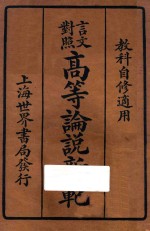 教科自修適用
言文
對照
高等論說新範
上海世界書局發行